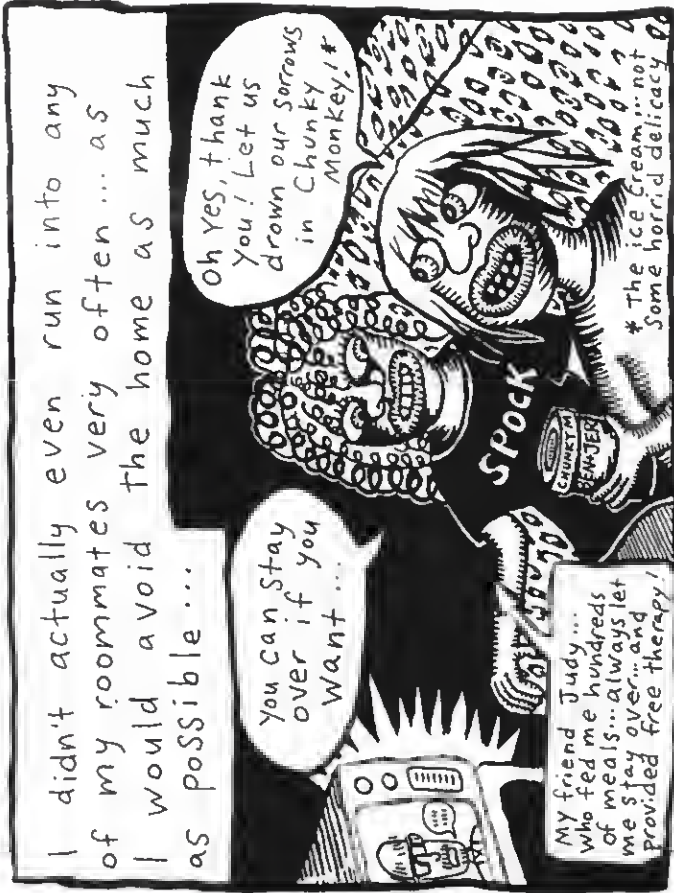 I didn't actually even run into any
of my roommates very often... as
I would avoid the home as much
as possible...
You can stay
over if you
want...
Oh yes, thank
you! Let us
drown our sorrows
in Chunky
Monkey!*
My friend Judy...
who fed me hundreds
of meals... always let
me stay over... and
provided free therapy!
SPOCK
CHUNKY M
BEN+JER
* The ice cream... not
some horrid delicacy